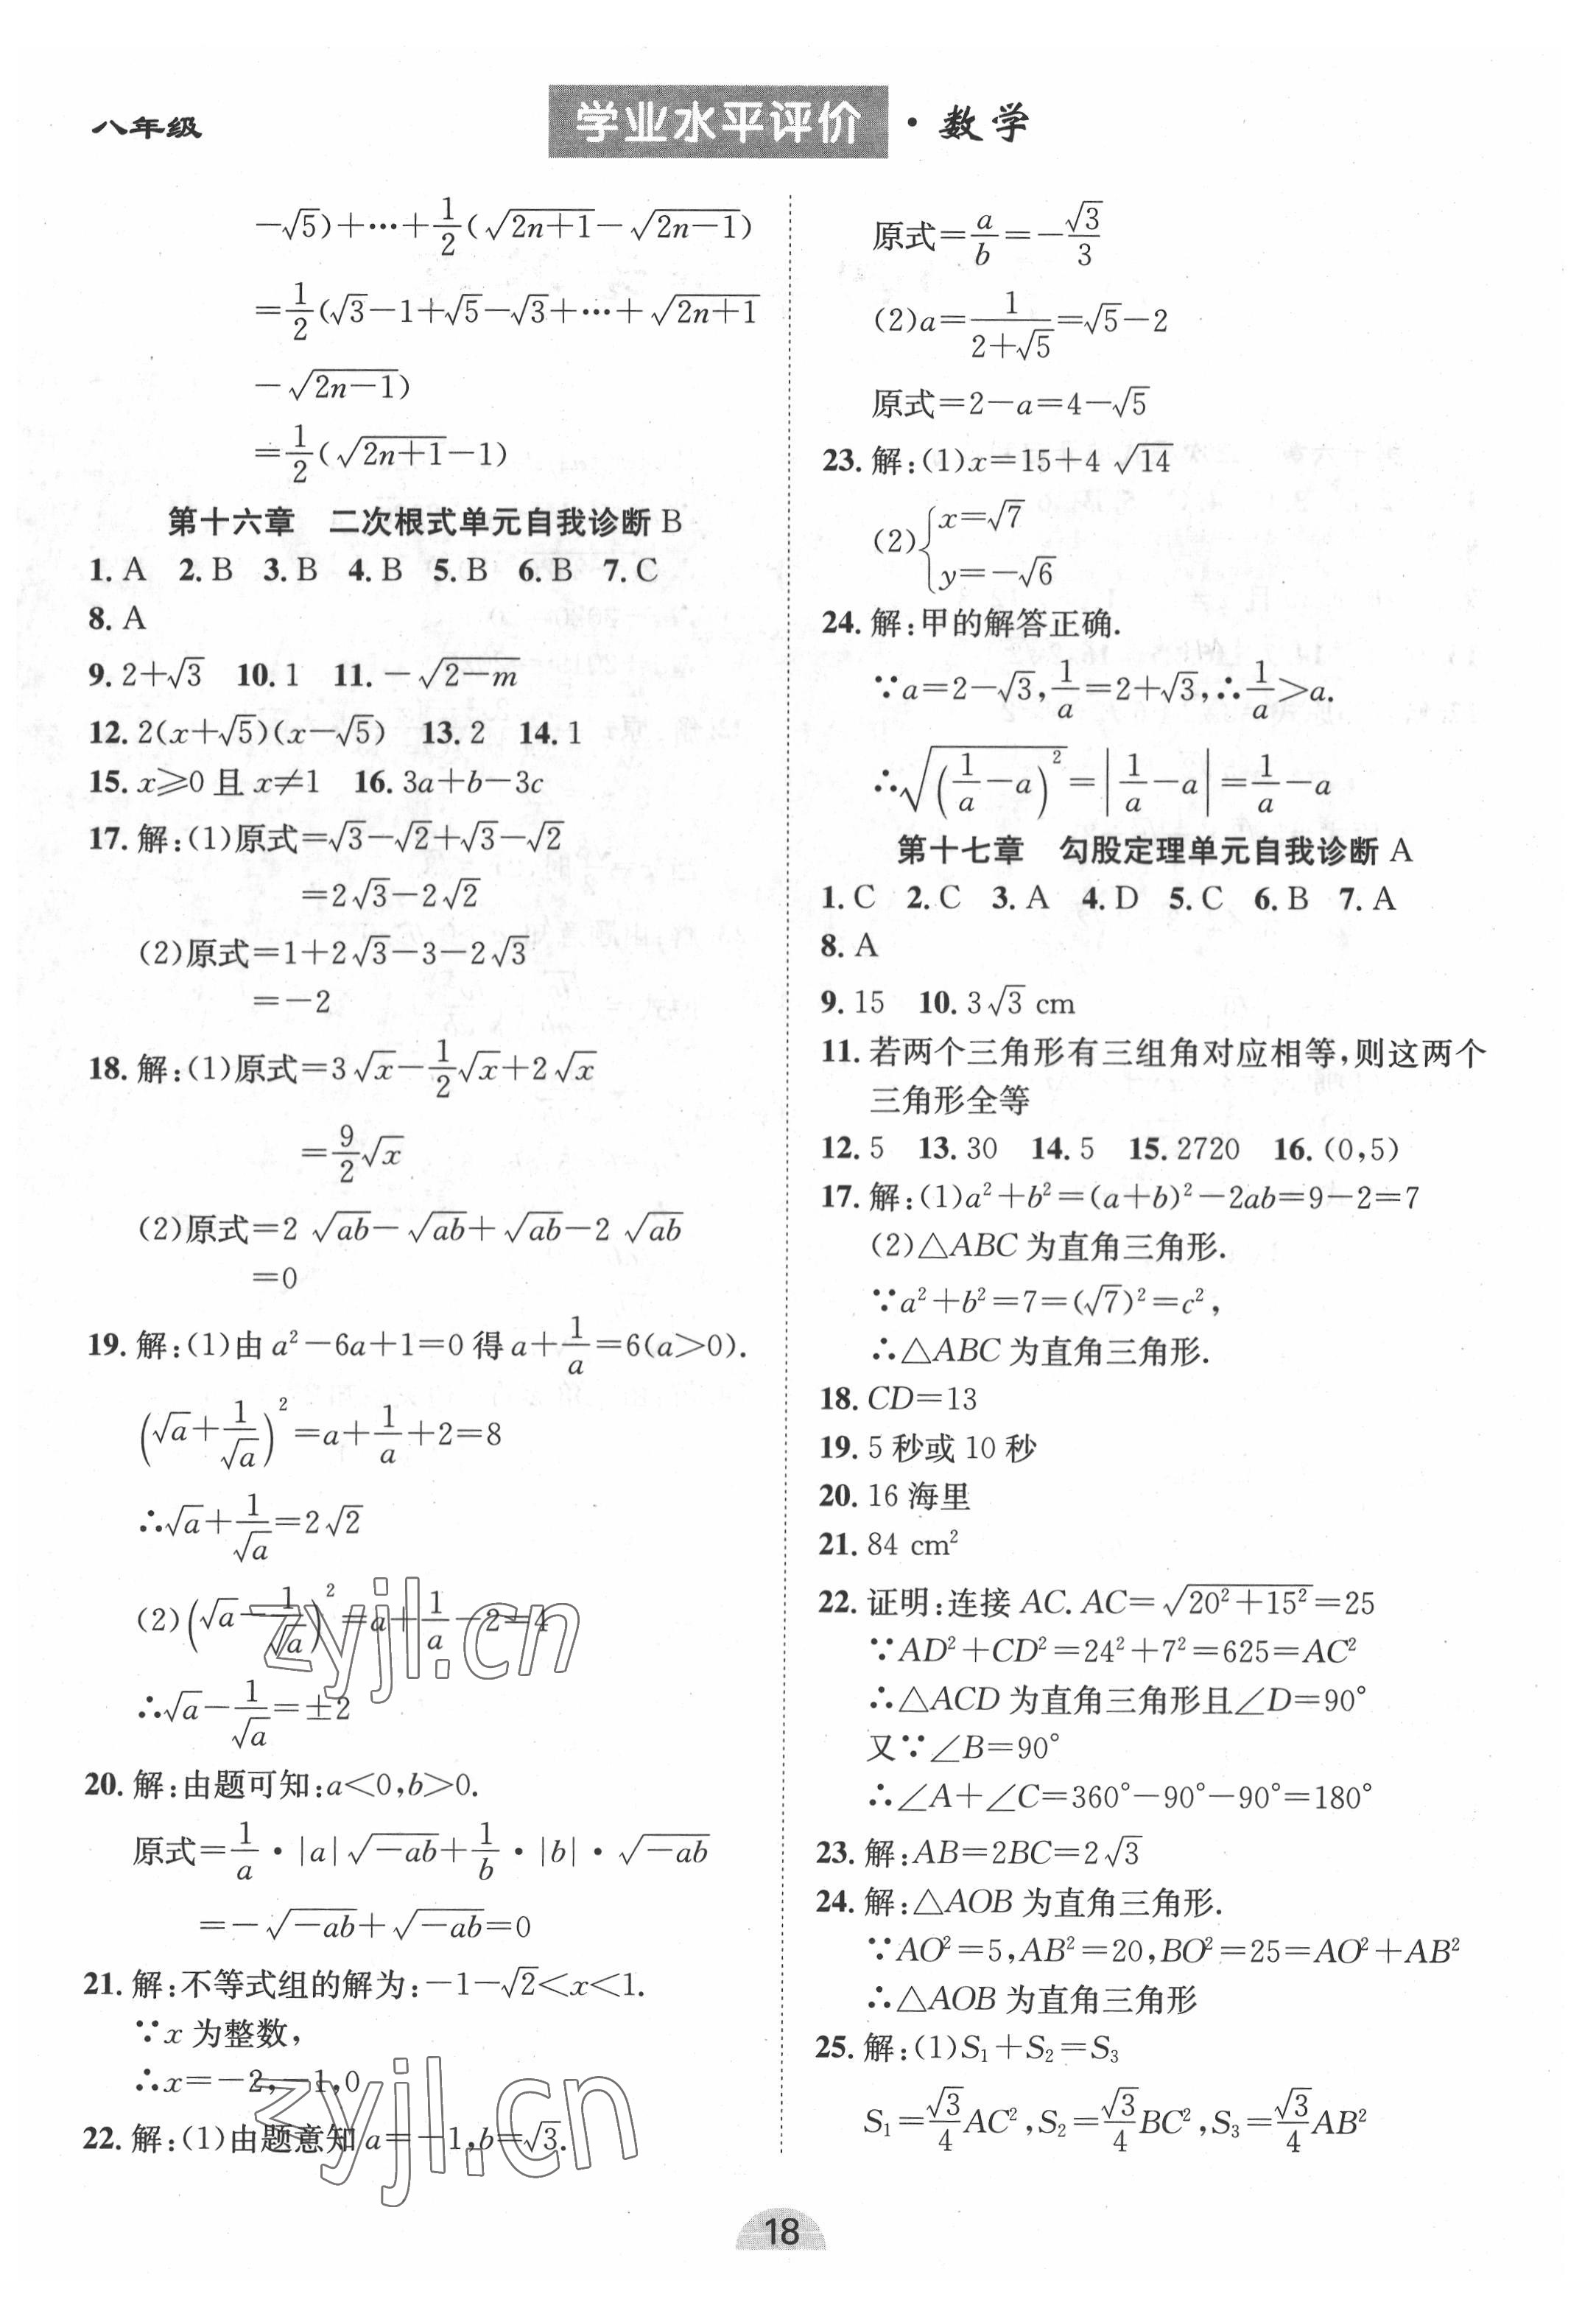 八年级
学业水平评价·数学
−√5)+⋯+1/2(√(2n+1)−√(2n−1))
=1/2(√3−1+√5−√3+⋯+√(2n+1)
−√(2n−1))
=1/2(√(2n+1)−1)
第十六章 二次根式单元自我诊断 B
1. A 2. B 3. B 4. B 5. B 6. B 7. C
8. A
9. 2+√3 10. 1 11. −√(2−m)
12. 2(x+√5)(x−√5) 13. 2 14. 1
15. x⩾0 且 x≠1 16. 3a+b−3c
17. 解:(1)原式=√3−√2+√3−√2
=2√3−2√2
(2)原式=1+2√3−3−2√3
=−2
18. 解:(1)原式=3√x−1/2√x+2√x
=9/2√x
(2)原式=2√(ab)−√(ab)+√(ab)−2√(ab)
=0
19. 解:(1)由 a²−6a+1=0 得 a+1/a=6(a>0).
(√a+1/√a)²=a+1/a+2=8
∴√a+1/√a=2√2
(2)(√a−1/√a)²=a+1/a−2=4
∴√a−1/√a=±2
20. 解:由题可知:a<0,b>0.
原式=1/a·|a|√(−ab)+1/b·|b|·√(−ab)
=−√(−ab)+√(−ab)=0
21. 解:不等式组的解为:−1−√2<x<1.
∵x 为整数,
∴x=−2,−1,0
22. 解:(1)由题意知 a=−1,b=√3.
原式=a/b=−√3/3
(2)a=1/(2+√5)=√5−2
原式=2−a=4−√5
23. 解:(1)x=15+4√14
(2){x=√7
y=−√6
24. 解:甲的解答正确.
∵a=2−√3,1/a=2+√3,∴1/a>a.
∴√((1/a−a)²)=|1/a−a|=1/a−a
第十七章 勾股定理单元自我诊断 A
1. C 2. C 3. A 4. D 5. C 6. B 7. A
8. A
9. 15 10. 3√3 cm
11. 若两个三角形有三组角对应相等,则这两个
三角形全等
12. 5 13. 30 14. 5 15. 2720 16. (0,5)
17. 解:(1)a²+b²=(a+b)²−2ab=9−2=7
(2)△ABC 为直角三角形.
∵a²+b²=7=(√7)²=c²,
∴△ABC 为直角三角形.
18. CD=13
19. 5 秒或 10 秒
20. 16 海里
21. 84 cm²
22. 证明:连接 AC. AC=√(20²+15²)=25
∵AD²+CD²=24²+7²=625=AC²
∴△ACD 为直角三角形且∠D=90°
又∵∠B=90°
∴∠A+∠C=360°−90°−90°=180°
23. 解:AB=2BC=2√3
24. 解:△AOB 为直角三角形.
∵AO²=5,AB²=20,BO²=25=AO²+AB²
∴△AOB 为直角三角形
25. 解:(1)S₁+S₂=S₃
S₁=√3/4AC²,S₂=√3/4BC²,S₃=√3/4AB²
zyjl.cn
zyjl.cn
18